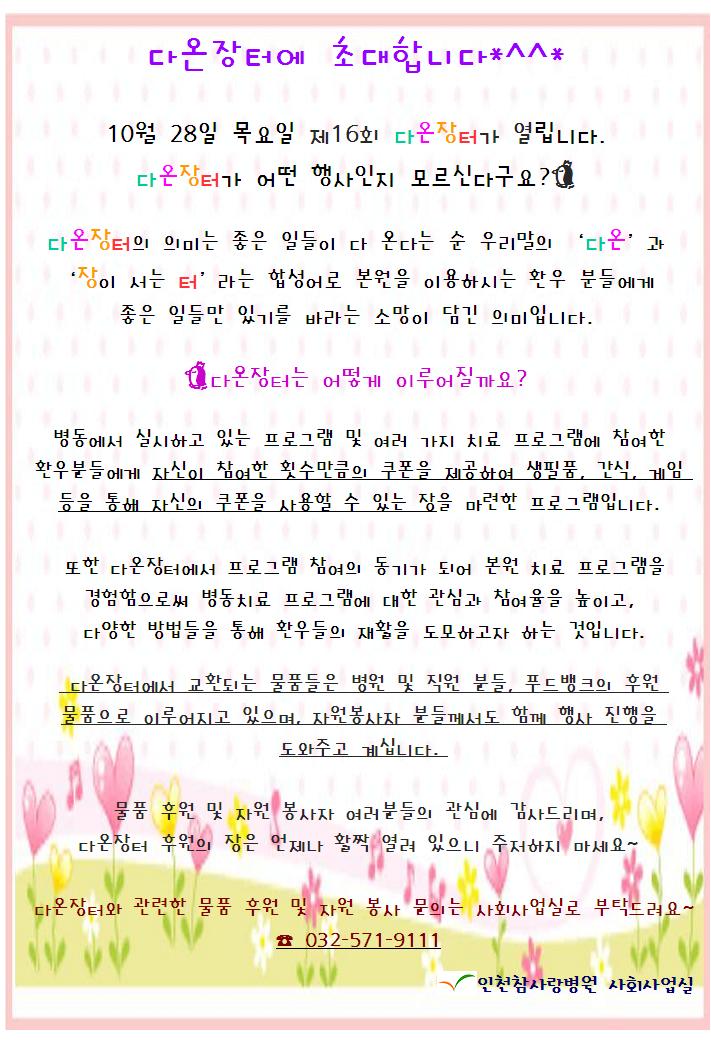 다온장터에 초대합니다*^^*
10월 28일 목요일 제16회 다온장터가 열립니다.
다온장터가 어떤 행사인지 모르신다구요?
다온장터의 의미는 좋은 일들이 다 온다는 순 우리말의 ‘다온’ 과
‘장이 서는 터’ 라는 합성어로 본원을 이용하시는 환우 분들에게
좋은 일들만 있기를 바라는 소망이 담긴 의미입니다.
다온장터는 어떻게 이루어질까요?
병동에서 실시하고 있는 프로그램 및 여러 가지 치료 프로그램에 참여한
환우분들에게 자신이 참여한 횟수만큼의 쿠폰을 제공하여 생필품, 간식, 게임
등을 통해 자신의 쿠폰을 사용할 수 있는 장을 마련한 프로그램입니다.
또한 다온장터에서 프로그램 참여의 동기가 되어 본원 치료 프로그램을
경험함으로써 병동치료 프로그램에 대한 관심과 참여율을 높이고,
다양한 방법들을 통해 환우들의 재활을 도모하고자 하는 것입니다.
다온장터에서 교환되는 물품들은 병원 및 직원 분들, 푸드뱅크의 후원
물품으로 이루어지고 있으며, 자원봉사자 분들께서도 함께 행사 진행을
도와주고 계십니다.
물품 후원 및 자원 봉사자 여러분들의 관심에 감사드리며,
다온장터 후원의 장은 언제나 활짝 열려 있으니 주저하지 마세요~
다온장터와 관련한 물품 후원 및 자원 봉사 문의는 사회사업실로 부탁드려요~
☎ 032-571-9111
인천참사랑병원 사회사업실